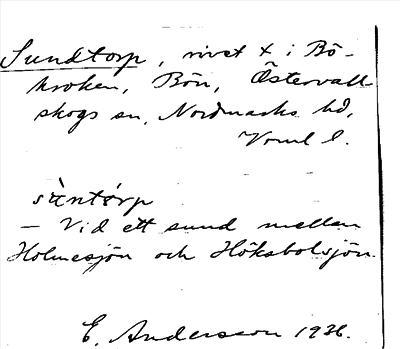 Sundtorp, rivet + i Bö-
kroken, Bön, Östervall-
skogs sn, Nordmarks hd,
Värml l.
sùntórp
— Vid ett sund mellan
Holmesjön och Höksbolsjön.
E. Andersson 1926.